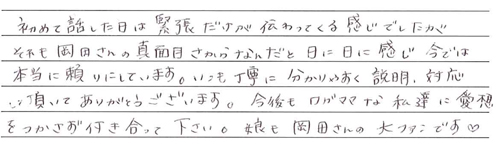 初めて話した日は緊張だけが伝わってくる感じでしたが
それも岡田さんの真面目さからなんだと日に日に感じ今では
本当に頼りにしています。いつも丁寧に分かりやすく説明、対応
頂いてありがとうございます。今後もワガママな私達に愛想
をつかさず付き合って下さい。娘も岡田さんの大ファンです♡